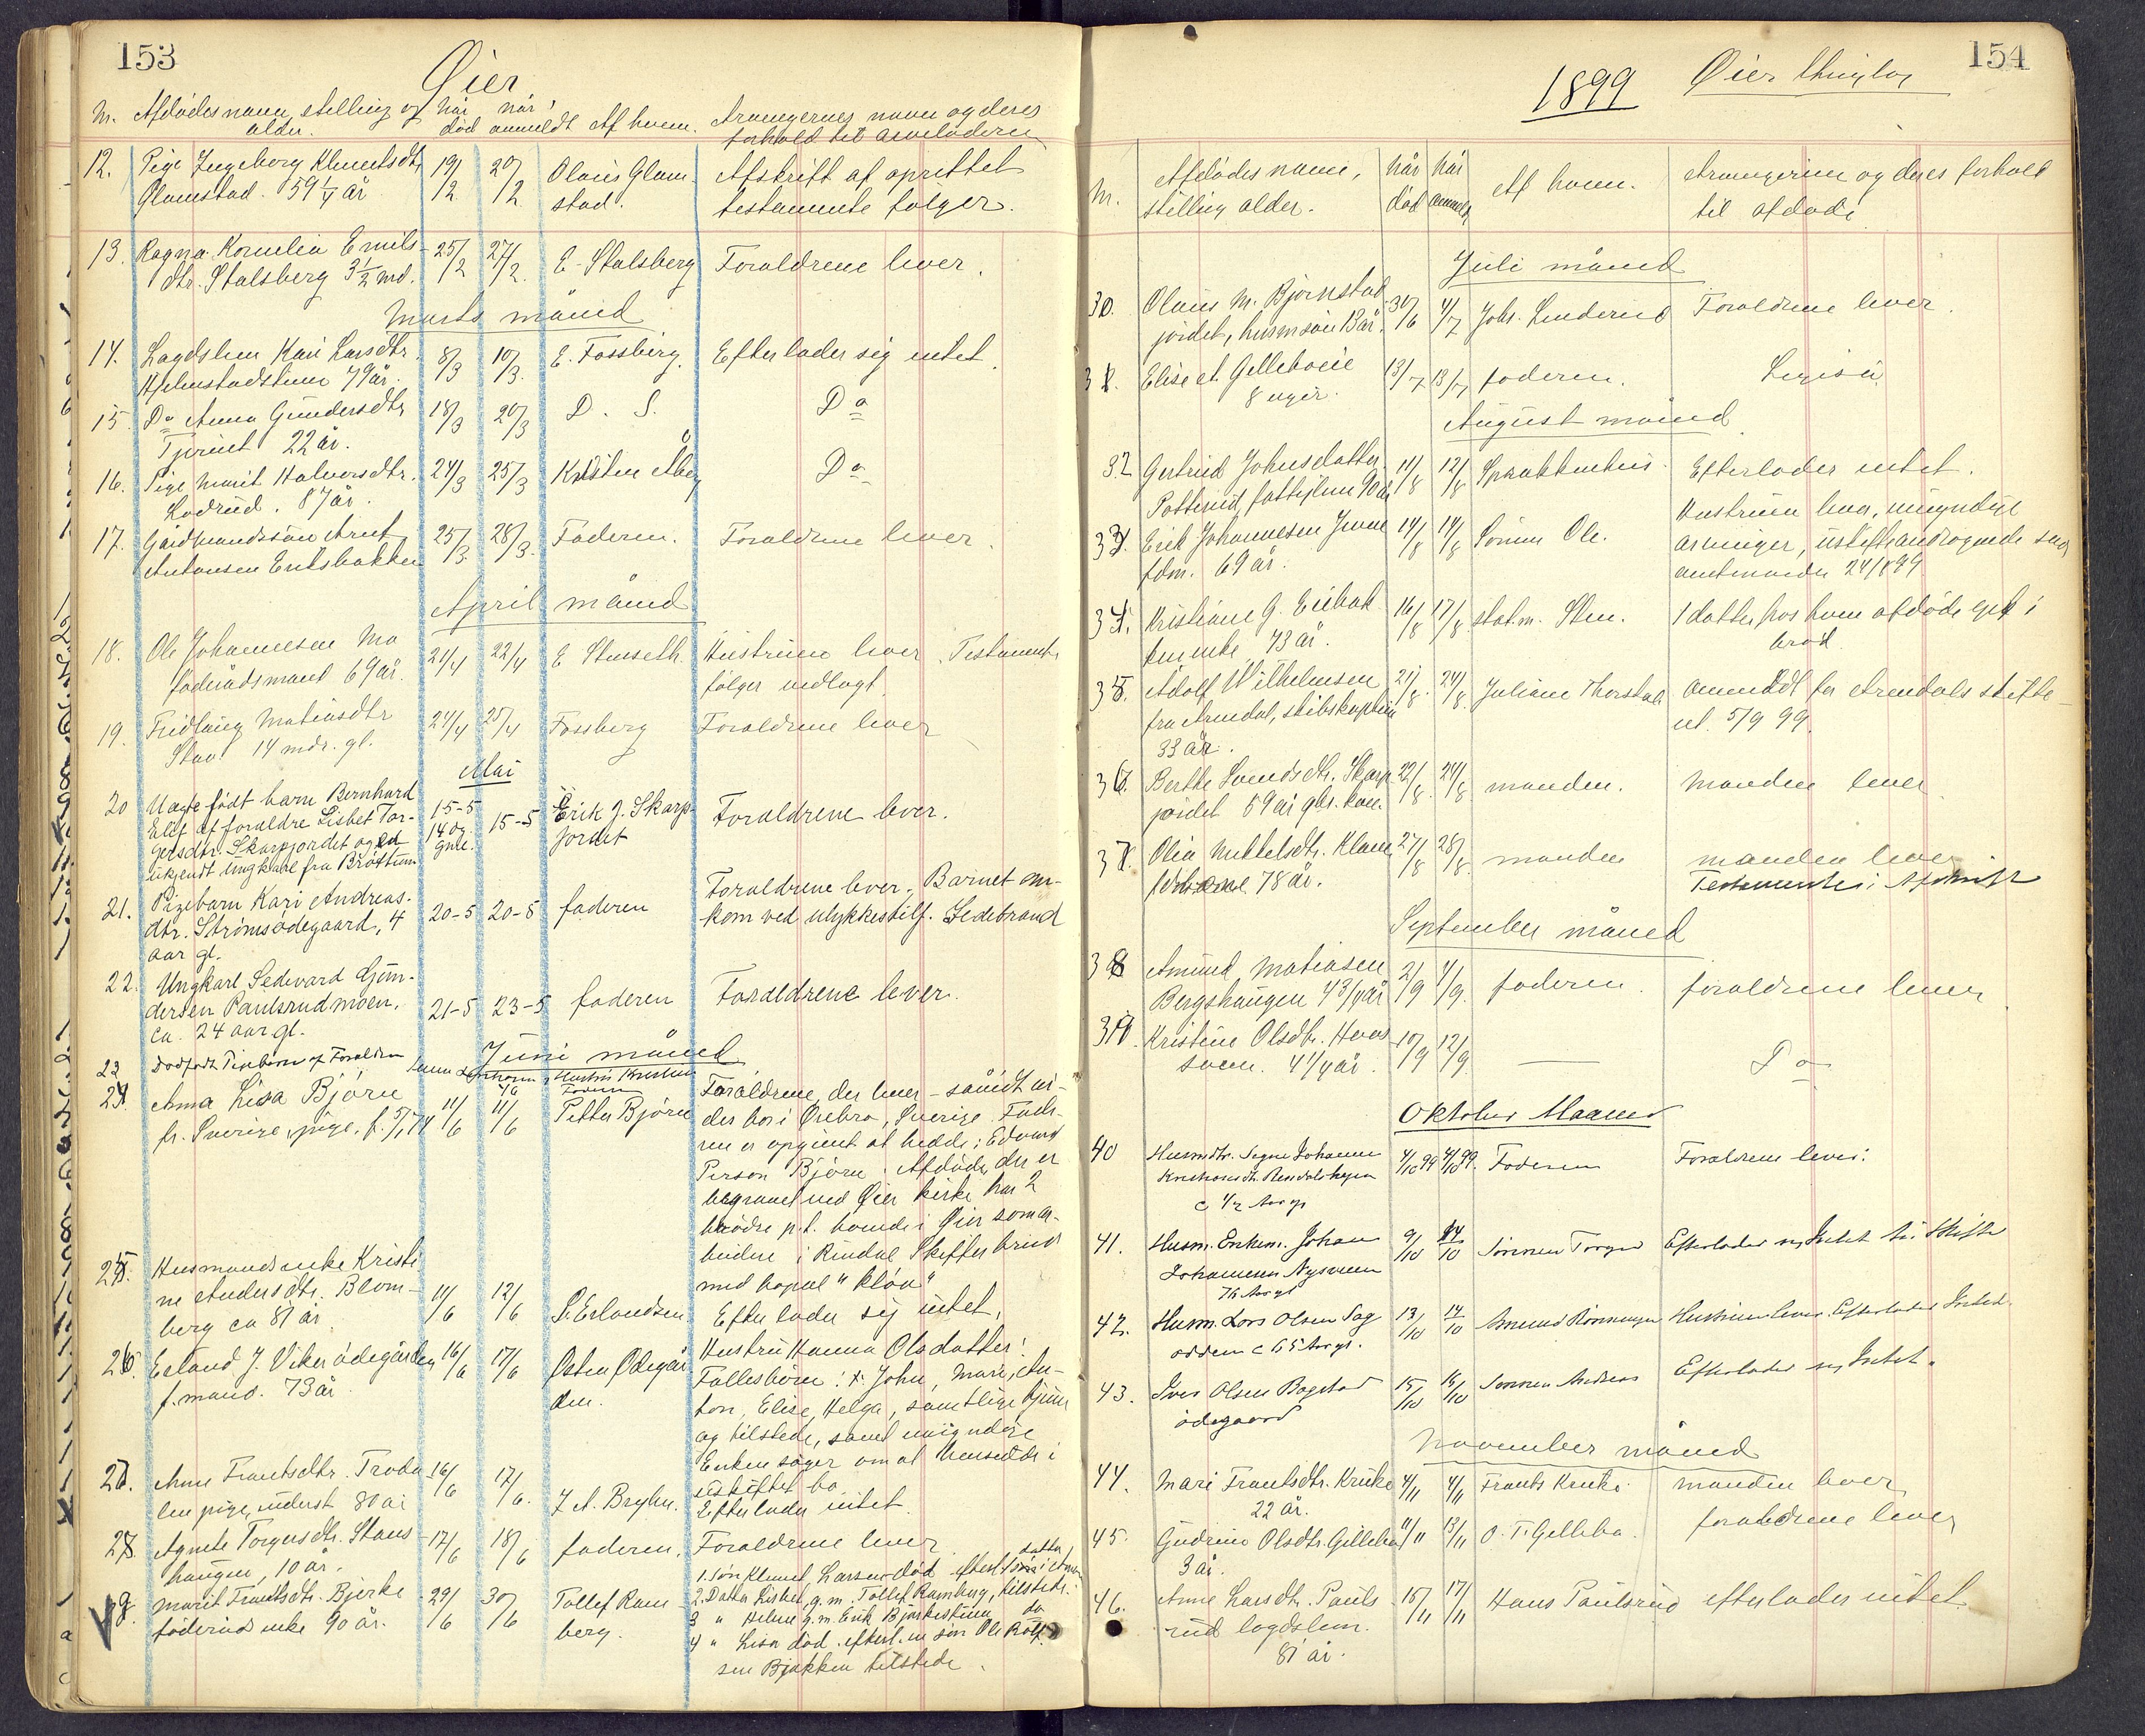 153
Øier
N. Afdødes navn, stilling og når når
alder. død anmeldt Af hvem. Arvingernes navn og deres
forhold til arveladeren
12. Pige Ingeborg Klemetsdtr. 19/2 20/2 Olaus Glom- Afskrift af oprettet
Glomstad. 59 1/4 år stad. testamente følger.
13. Ragna Kornelia Emils- 25/2 27/2 E. Stalsberg Forældrene lever.
dtr. Stalsberg 3 1/2 md.
Marts måned
14. Lægdslem Kari Larsdtr. 8/3 10/3 E. Fossberg. Efterlader sig intet.
79 år.
15. Do Anna Gundersdtr. 18/3 20/3 D. S. Do
22 år.
16. Pige Marit Halvorsdtr. 24/3 25/3 Do
Lodrud. 87 år.
17. Gårdmandssøn Arnt 25/3 28/3 Faderen. Forældrene lever.
Antonsen
April måned
18. Ole Johannesen Mo 21/4 22/4 E Stenseth. Hustruen lever. Testament
føderådsmand 69 år. følger vedlagt.
19. Fridtjung Matiasdtr 24/4 25/4 Fossberg Forældrene lever
14 mdr. gl.
Mai
20 Uægte født barn Bernhard 15-5 15-5 Erik J. Skarp- Forældrene lever.
Elif af forældre Lisbet Tor- 14 dg. jordet
gersdtr. Skarpjordet og en gml.
ukjendt ungkarl fra Brøttum
21. Pigebarn Kari Andreas- 20-5 20-5 faderen Forældrene lever. Barnet om-
dtr. Strømsødegaard, 4 kom ved ulykkestilf. Ildebrand
aar gl.
22. Ungkarl Sedevard Gun- 21-5 23-5 faderen Forældrene lever.
dersen Paulsrudmoen.
ca. 24 aar gl.
Juni måned
23 Dødfødt Pigebarn af Forældre
24. Anna Lisa Björn 11/6 11/6 Petter Björn Forældrene, der lever - såvidt vi-
fr. Sverige, pige, f. 5/1 74 des bor i Örebro, Sverige. Fade-
ren er opgivet at hedde: Edvard
Person Björn. Afdøde, der er
begravet ved Øier kirke har 2
brødre p.t. boende i Øier som ar-
beidere i
med bopæl "Kløva"
25. Husmandsenke Kristi- 11/6 12/6 S. Erlandsen Efterlader sig intet.
ne Andersdtr. Blom-
berg ca 81 år
26. Erland J. Viker ødegården 16/6 17/6 Østen Ødegår- Hustru Hanna Olsdatter:
f. mand. 73 år. den. Fællesbørn: John, Mari, An-
ton, Elise, Helga, samtlige hjemme
og tilstede, samt umyndige
Enken søger om at hensidde i
uskiftet bo
27. Anne Frantsdtr. 16/6 17/6. J. A. Bryhn. Efterlader intet.
len pige, inderst 80 år
28. Agnete Torgersdtr. Stavs- 17/6 18/6 faderen. Forældrene lever.
haugen, 10 år.
29. Marit Frantsdtr. Bjerke 29/6 30/6 Tollef Ram- 1. Søn Klemet Larsen død
føderåds enke 90 år. berg. 2. Datter Lisbet, g.m. Tollef Ramberg, tilstede.
3 " Helene g.m. Erik do
4 " Lisa død. efterl. en søn Ole
sen Bjøkken tilstede.
154
1899 Øier thinglag
N. Afdødes navn, når når Af hvem. Arvingerne og deres forhold
stilling alder. død anmeldt til afdøde
Juli måned
30. Olaus M. Bjørnstad- 30/6 4/7 Johs. Linderud Forældrene lever.
jordet, husmsøn 13 år.
31. Elise A. Gillebovie 13/7 13/7 faderen.
8 uger.
August måned
32 Gertrud Johnsdatter 11/8 12/8 Sprækkenhus. Efterlader intet.
Potterud, fattiglem 90 år
33. Erik Johannesen 14/8 14/8 Sønnen Ole. Hustruen lever, umyndige
fdm. 69 år. arvinger,
amtmanden 24/8 99
34. Kristiane G. Enbak 16/8 17/8 stat.m. Sten. 1 datter, hos hvem afdøde gik i
enke 73 år. brød.
35. Adolf Wilhelmsen 21/8 24/8 Juliane Thorstad. Anmeldt for Arendals skifte-
fra Arendal, skibskaptein ret. 5/9 99.
33 år.
36. Berthe Svendsdtr. Skarp- 22/8. 24/8 manden. Manden lever
jordet 59 år gbr. kone.
37. Olia Mikkelsdtr. 27/8 28/8. manden manden lever
78 år. Testamentes i Afskrift
September måned
38 Amund Matiasen 2/9 4/9. faderen. forældrene lever
Bergshaugen 4 3/4 år
39. Kristine Olsdtr. 10/9 12/9. — Do
4 1/4 år.
Oktober Maaned
40 Husmdtr. Signe Johanne 4/10 99 4/10 99. Faderen Forældrene lever.
c 1/2 Aar gl
41. Husm. Enkem. Johan 9/10 14/10 Sønnen Torger Efterlader sig Intet til Skifte
Johannesen
76 Aar gl
42. Husm. Lars Olsen Sag- 13/10 14/10 Amund Rønningen Hustruen lever. Efterlader Intet.
odden c 65 Aar gl.
43. Iver Olsen Bagstad 15/10 16/10 Sønnen Andreas Efterlader sig Intet.
ødegaard
November måned
44. Mari Frantsdtr. Kruke 4/11 4/11 Frants Kruke. manden lever
22 år.
45. Gudrun Olsdtr. Gillebo 11/11 13/11 O. T. Gillebo. forældrene lever
3 år.
46. Anne Larsdtr. Pauls- 15/11 17/11 Hans Paulsrud efterlader intet
rud lægdslem.
81 år.